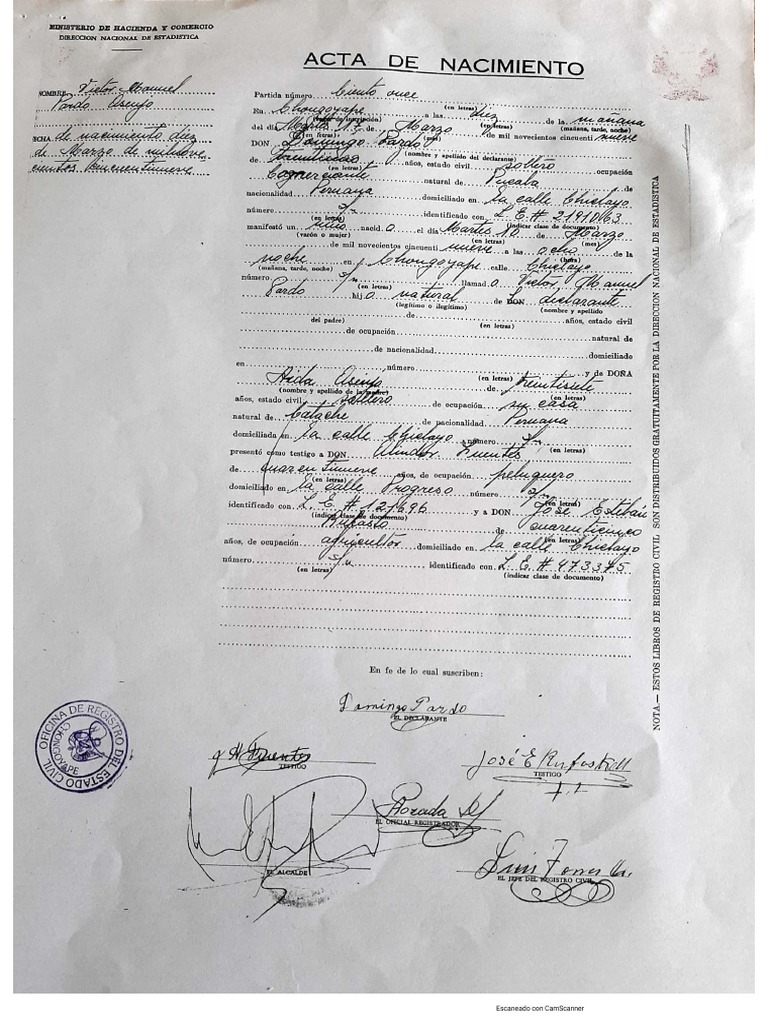 MINISTERIO DE HACIENDA Y COMERCIO
DIRECCION NACIONAL DE ESTADISTICA
NOMBRE Victor Manuel
Pardo Asenjo
FECHA de nacimiento diez
de Marzo de mil nove
cientos cincuentinueve
ACTA DE NACIMIENTO
Partida número Ciento once
(en letras)
En Chongoyape a las diez de la mañana
(lugar de inscripción) (en letras) (mañana, tarde, noche)
del día Martes 17 de Marzo de mil novecientos cincuenti nueve
(en letras) (mes) (en letras)
DON Domingo Pardo
(nombre y apellido del declarante)
de treintidos años, estado civil soltero ocupación
Comerciante natural de Pucala de
nacionalidad Peruana domiciliado en la calle Chiclayo
número s/n identificado con L.E.# 2191063
(en letras) (indicar clase de documento)
manifestó un niño nacido el día Martes 10 de Marzo
(varón o mujer) (en letras) (mes)
de mil novecientos cincuenti nueve a las ocho de la
(en letras) (hora)
noche en Chongoyape calle Chiclayo
(mañana, tarde, noche)
número s/n llamado Victor Manuel
(en letras)
Pardo hijo natural de DON declarante
(legítimo o ilegítimo) (nombre y apellido
de años, estado civil
del padre) (en letras)
de ocupación natural de
de nacionalidad domiciliado
en número y de DOÑA
(en letras)
Aida Asenjo de treintisiete
(nombre y apellido de la madre) (en letras)
años, estado civil soltera de ocupación su casa
natural de Catache de nacionalidad Peruana
domiciliada en la calle Chiclayo número s/n
(en letras)
presentó como testigo a DON Alindor Fuentes
de cuarentinueve años, de ocupación peluquero
(en letras)
domiciliado en la calle Progreso número s/n
(en letras)
identificado con L.E.# 127696 y a DON José Esteban
(indicar clase de documento)
Rufasto de cuarenticinco
(en letras)
años, de ocupación agricultor domiciliado en la calle Chiclayo
número s/n identificado con L.E.# 973375
(en letras) (indicar clase de documento)
En fe de lo cual suscriben:
Domingo Pardo
EL DECLARANTE
Fuentes
TESTIGO
José E Rufasto
TESTIGO
EL OFICIAL REGISTRADOR
EL ALCALDE
Luis Torres
EL JEFE DEL REGISTRO CIVIL
OFICINA DE REGISTRO DEL ESTADO CIVIL
CHONGOYAPE
NOTA.— ESTOS LIBROS DE REGISTRO CIVIL SON DISTRIBUIDOS GRATUITAMENTE POR LA DIRECCION NACIONAL DE ESTADISTICA
Escaneado con CamScanner